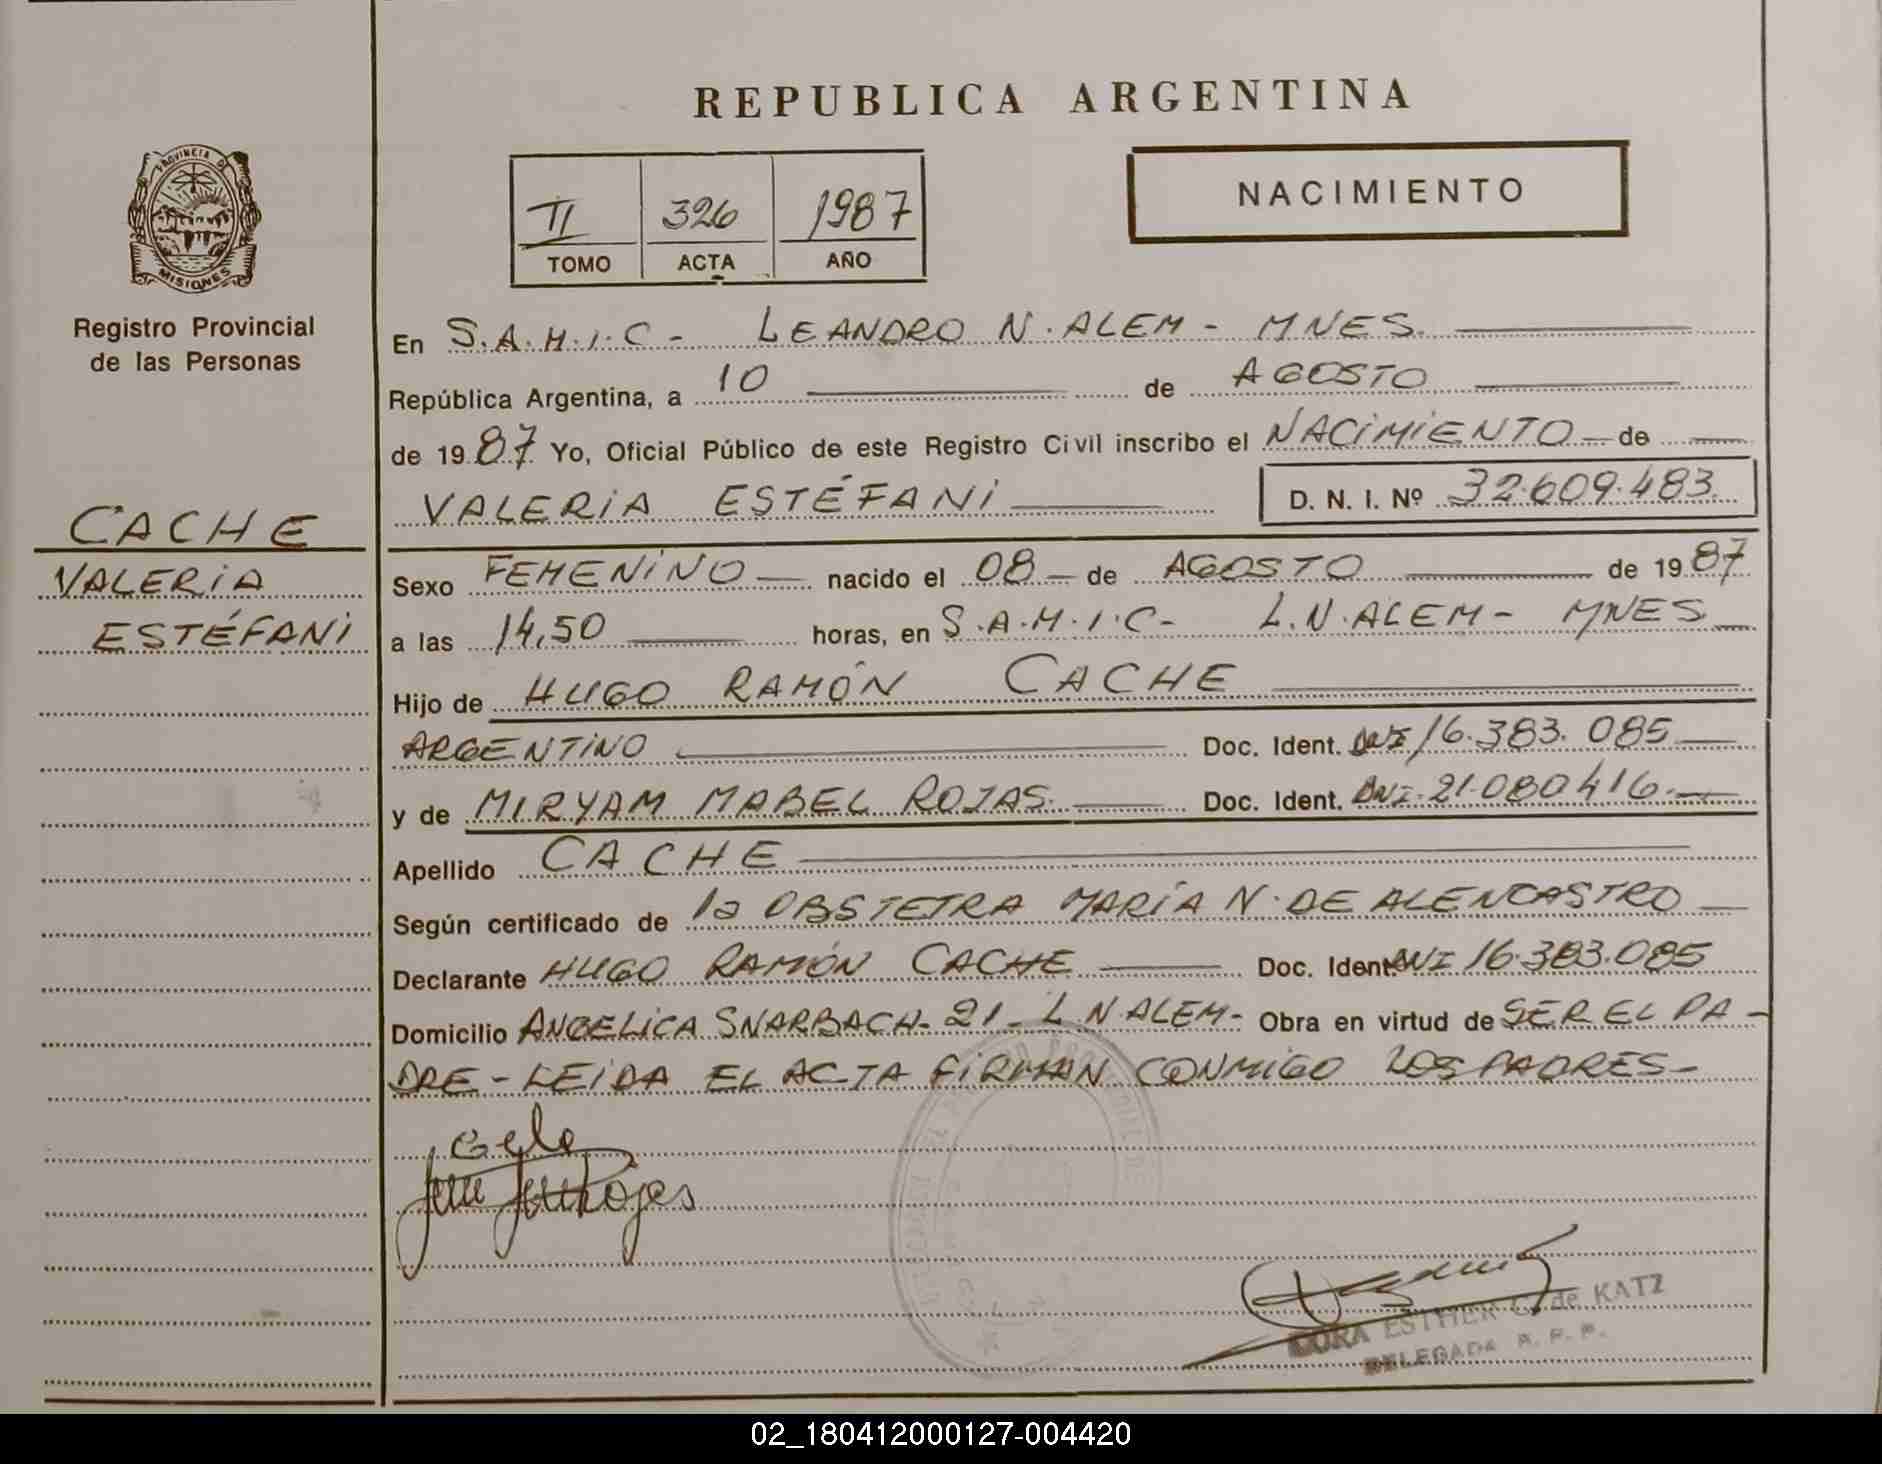 REPUBLICA ARGENTINA
NACIMIENTO
II 326 1987
TOMO ACTA AÑO
PROVINCIA DE
MISIONES
Registro Provincial
de las Personas
CACHE
VALERIA
ESTÉFANI
En S.A.M.I.C- LEANDRO N. ALEM- MNES.
República Argentina, a 10 de AGOSTO
de 1987 Yo, Oficial Público de este Registro Civil inscribo el NACIMIENTO de
VALERIA ESTÉFANI D. N. I. Nº 32.609.483
Sexo FEMENINO nacido el 08 de AGOSTO de 1987
a las 14,50 horas, en S.A.M.I.C- L.N.ALEM- MNES
Hijo de HUGO RAMÓN CACHE
ARGENTINO Doc. Ident. DNI 16.383.085
y de MIRYAM MABEL ROJAS. Doc. Ident. DNI.21.080416.
Apellido CACHE
Según certificado de la OBSTETRA MARÍA N. DE ALENCASTRO
Declarante HUGO RAMÓN CACHE Doc. Ident. DNI 16.383.085
Domicilio ANGELICA SNARBACH- 21- L N ALEM- Obra en virtud de SER EL PA-
DRE - LEIDA EL ACTA FIRMAN CONMIGO LOS PADRES-
Rojas
DORA ESTHER G. de KATZ
DELEGADA R. P. P.
02_180412000127-004420